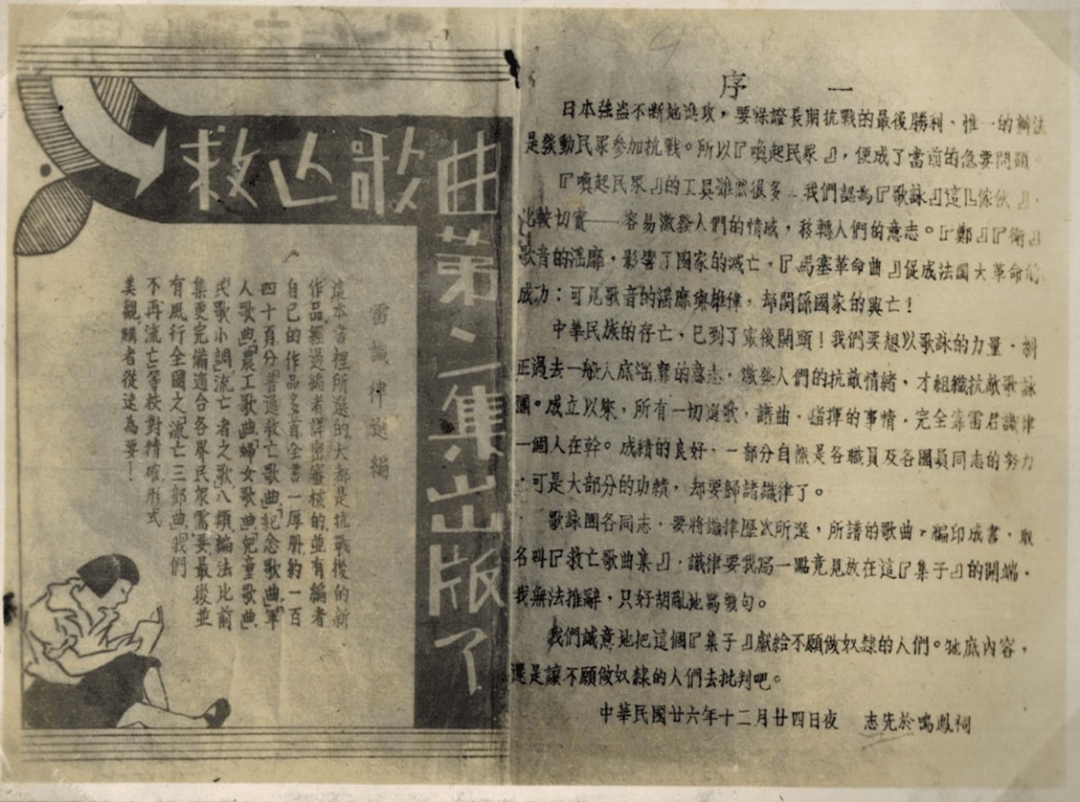 救亡歌曲第二集出版了
雷識律選編
這本書裡所選的大都是抗戰後的新
作品經過編者詳密審核的並有編者
自己的作品多首全書一厚册約一百
四十頁分普通救亡歌曲」「紀念歌曲」「軍
人歌曲」「農工歌曲」「婦女歌曲」「兒童歌曲」
民歌小調」「流亡者之歌」八類編法比前
集更完備適合各界民衆需要最後並
有風行全國之「流亡三部曲」「我們
不再流亡」等校對精確形式
美觀購者從速為要！
序一
日本強盜不斷地進攻，要保證長期抗戰的最後勝利，惟一的辦法
是發動民眾參加抗戰。所以『喚起民眾』，便成了當前的急要問題
『喚起民眾』的工具雖然很多，我們認為『歌詠』這『傢伙』，
比較切實——容易激發人們的情感，移轉人們的意志。『鄭』『衛』
歌音的淫靡，影響了國家的滅亡，『馬塞革命曲』促成法国大革命的
成功：可見歌音的淫靡與雄偉，却関係國家的興亡！
中華民族的存亡，已到了最後関頭！我們要想以歌詠的力量，糾
正過去一般人底淫靡的意志，激發人們的抗敵情緒，才組織抗敵歌詠
團。成立以來，所有一切選歌，譜曲，指揮的事情，完全靠雷君識律
一個人在幹。成績的良好，一部分自然是各職員及各團員同志的努力
，可是大部分的功績，却要歸諸識律了。
歌詠團各同志，要將識律歷次所選，所譜的歌曲，編印成書，取
名叫『救亡歌曲集』，識律要我寫一點意見放在這『集子』的開端，
我無法推辭，只好胡亂地寫幾句。
我們誠意地把這個『集子』獻給不願做奴隸的人們。牠底內容，
還是讓不願做奴隸的人們去批判吧。
中華民國廿六年十二月廿四日夜　志先於鳴鳳祠